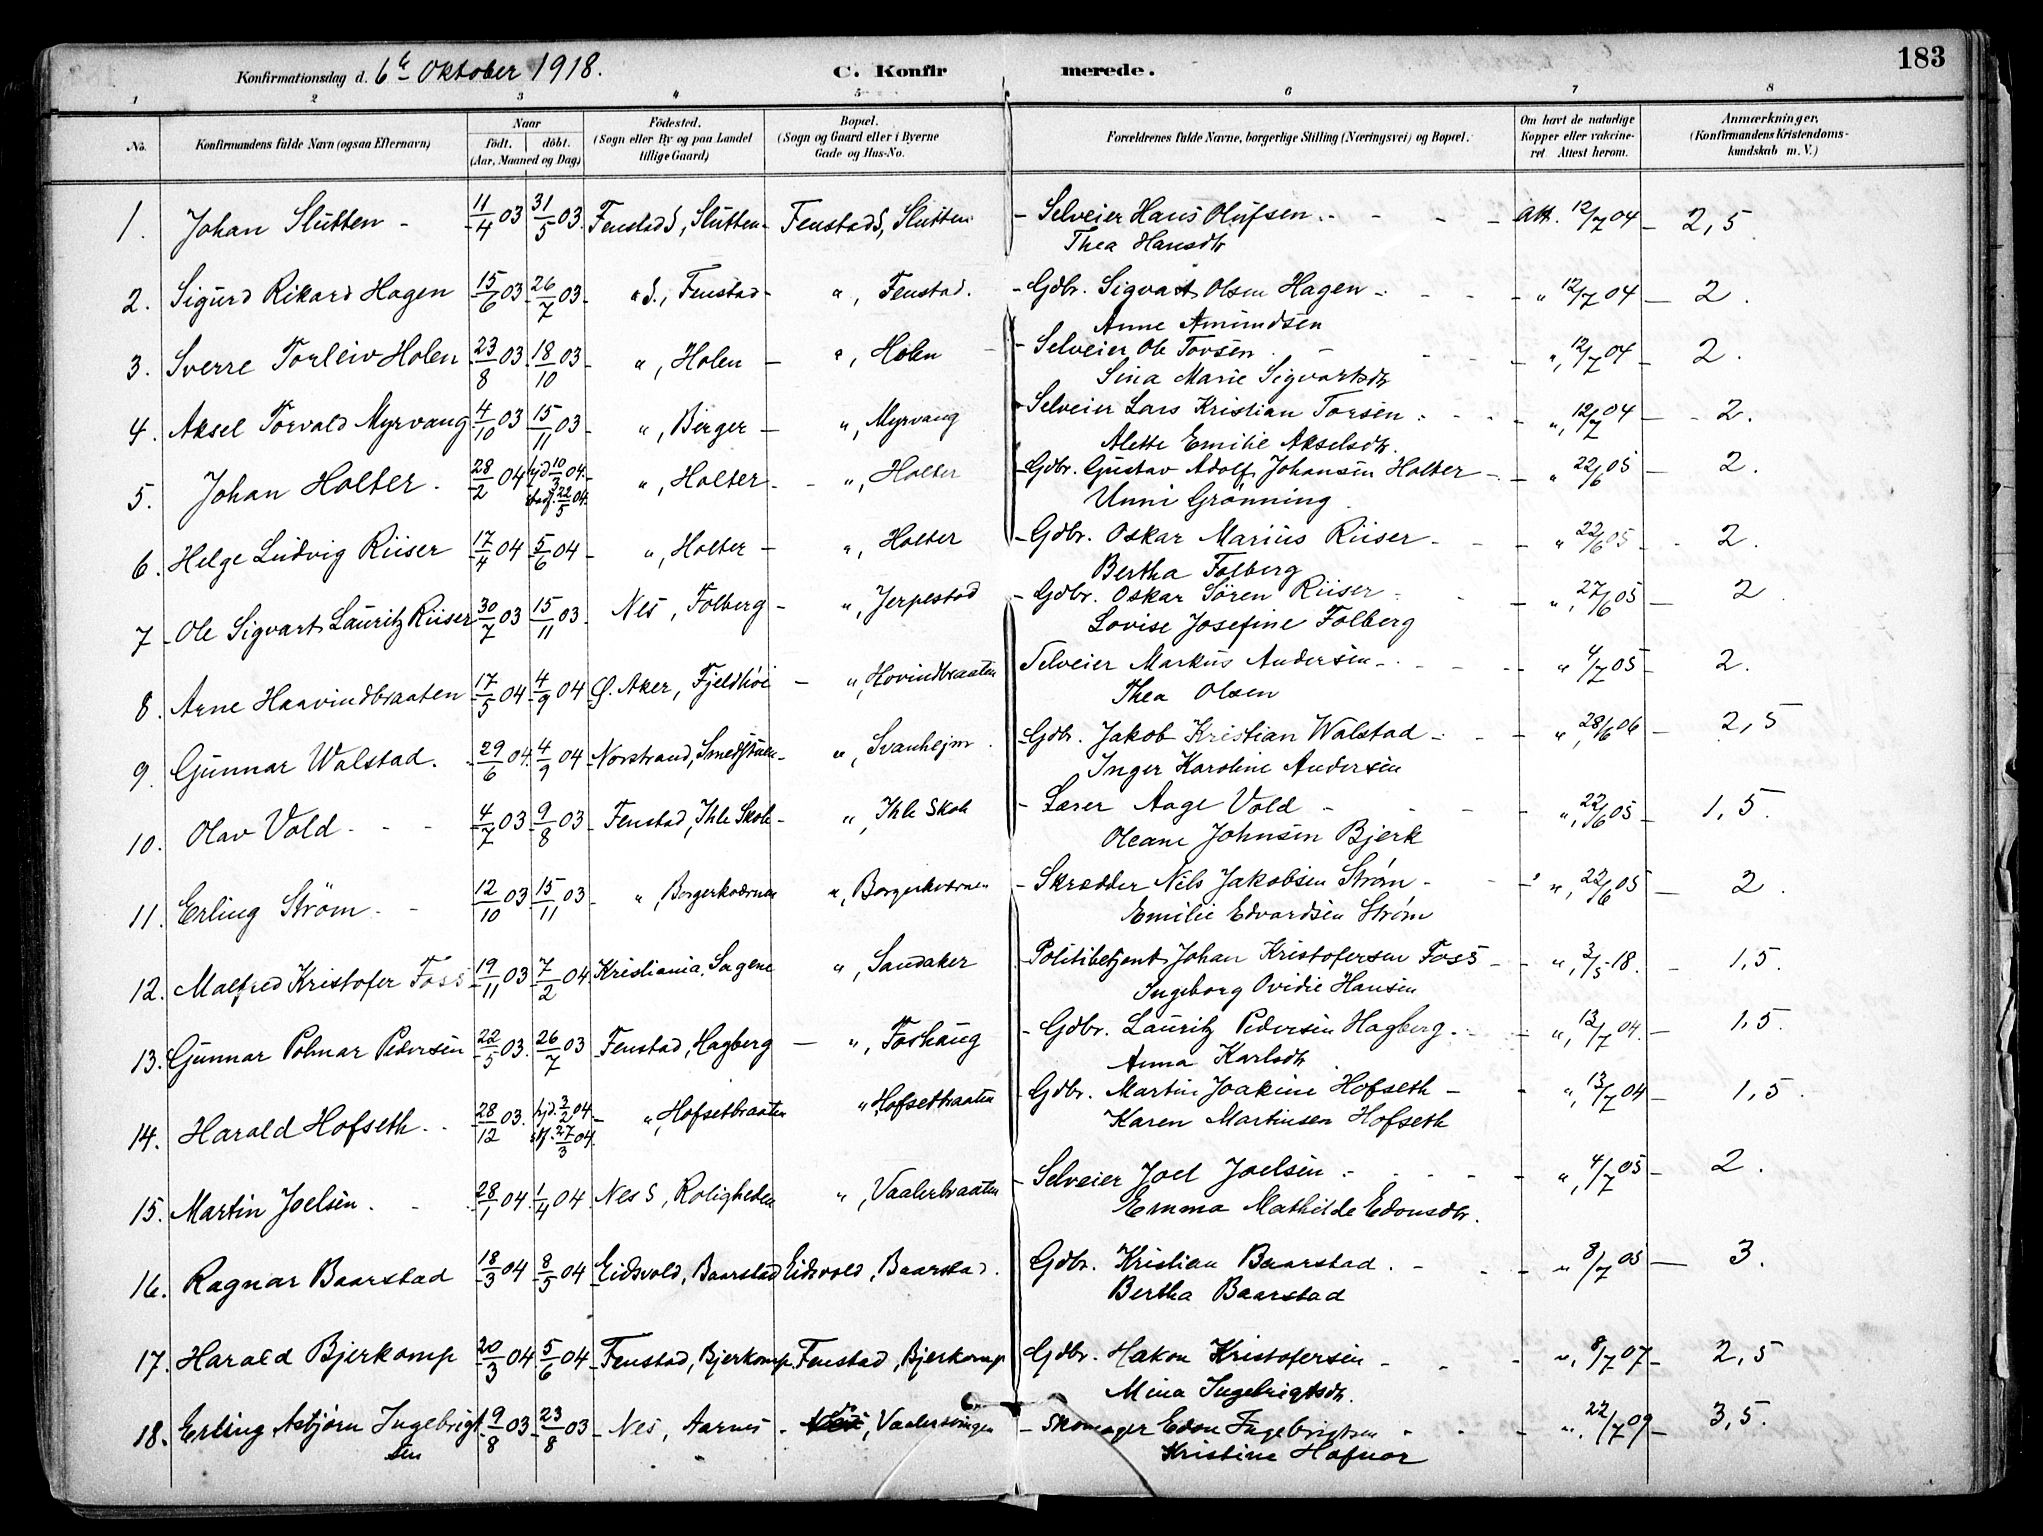 183
Konfirmationsdag d. 6te Oktober 1918. C. Konfirmerede.
1 2 3 4 5 6 7 8
No. Konfirmandens fulde Navn (ogsaa Efternavn) Naar født. døbt. (Aar, Maaned og Dag) Fødested. (Sogn eller By og paa Landet tillige Gaard) Bopæl. (Sogn og Gaard eller i Byerne Gade og Hus-No. Forældrenes fulde Navne, borgerlige Stilling (Næringsvei) og Bopæl. Om havt de naturlige Kopper eller vakcineret. Attest herom. Anmærkninger, (Konfirmandens Kristendomskundskab m. V.)
1. Johan Slutten - 11/4 03 31/5 03. Fenstad S, Slutten - Fenstad S, Slutten - Selveier Hans Olufsen. - Att. 12/7 04 - 2,5
Thea Hansdtr
2. Sigurd Rikard Hagen 15/6 03 26/7 03 - " S., Fenstad - ", Fenstad. - Gdbr. Sigvart Olsen Hagen - " 12/7 04 - 2.
Anne Amundsen
3. Sverre Torleiv Holen 23/8 03 18/10 03 - ", Holen - ", Holen - Selveier Ole Tovsen - ", 12/7 04 - 2.
Sina Marie Sigvartsdtr
4. Aksel Torvald Myrvang 4/10 03 15/11 03 - ", Berger - ", Myrvang - Selveier Lars Kristian Torsen - ", 12/7 04 - 2.
Alette Emilie Akselsdtr.
5. Johan Holter. 28/2 04 hjd 10/3 04. stadf. 22/5 04. ", Holter - ", Holter - Gdbr. Gustav Adolf Johansen Holter - " 22/6 05 - 2.
Unni Grønning
6. Helge Ludvig Riiser 17/4 04 5/6 04 - ", Holter - ", Holter - Gdbr. Oskar Marius Riiser - " 22/6 05 - 2.
Bertha Folberg
7. Ole Sigvart Lauritz Riiser 30/7 03 15/11 03 Nes, Folberg - ", Jerpestad - Gdbr. Oskar Sören Riiser - ", 27/6 05 - 2
Lovise Josefine Folberg
8. Arne Haavindbraaten 17/5 04 4/9 04 Ø. Aker, Fjeldhøi - ", Hovindbraaten Selveier Markus Andersen - " 4/7 05 - 2.
Thea Olsen
9. Gunnar Walstad. 29/6 04 4/9 04 Norstrand, Smedstuen - ", Svanhejm. Gdbr. Jakob Kristian Walstad - ", 28/6 06 - 2,5
Inger Karoline Andersen
10. Olav Vold - 4/7 03 9/8 03 - Fenstad, Ihle Skole - ", Ihle Skole - Lærer Aage Vold - ", 22/6 05 - 1,5.
Oleane Johnsen Bjerk
11. Erling Strøm. 12/10 03 15/11 03 - ", Borgerkværnen ", Borgerkværnen - Skrædder Nils Jakobsen Strøm - ", 22/6 05 - 2.
Emilie Edvardsen Strøm
12. Malfred Kristofer Foss 19/11 03 7/2 04. Kristiania, Sagene ", Sandaker - Politibetjent Johan Kristofersen Foss - ", 3/5 - 18. - 1,5.
Ingeborg Ovidie Hansen
13. Gunnar Polmar Pedersen 22/5 03. 26/7 03 Fenstad, Hagberg - ", Foshaug - Gdbr. Lauritz Pedersen Hagberg. - ", 13/7 04. - 1,5.
Anna Karlsdtr.
14. Harald Hofseth. 28/12 03. hjd. 2/2 04. stf. 27/3 04. ", Hofsetbraaten ", Hofsetbraaten Gdbr. Martin Joakim Hofseth - ", 13/7 04 - 1,5.
Karen Martinsen Hofseth
15. Martin Joelsen. 28/1 04 1/4 04 Nes S, Roligheden ", Vaalerbraaten - Selveier Joel Joelsen - ", 4/7 05 - 2.
Emma Mathilde Edonsdtr.
16. Ragnar Baarstad 18/3 04 8/5 04 Eidsvold, Baarstad Eidsvold, Baarstad. Gdbr. Kristian Baarstad. - " 8/7 05 - 3.
Bertha Baarstad
17. Harald Bjerkamp 20/3 04 5/6 04 Fenstad, Bjerkamp. Fenstad, Bjerkamp Gdbr. Hakon Kristofersen - ", 8/7 07 - 2,5
Mina Ingebrigtsdtr.
18. Erling Asbjørn Ingebrigtsen 9/8 03 23/8 03 - Nes, Aarnes - Vaalersvingen - Skomager Edon Ingebrigtsen ". 22/7 09 - 3,5.
Kristine Hofnor